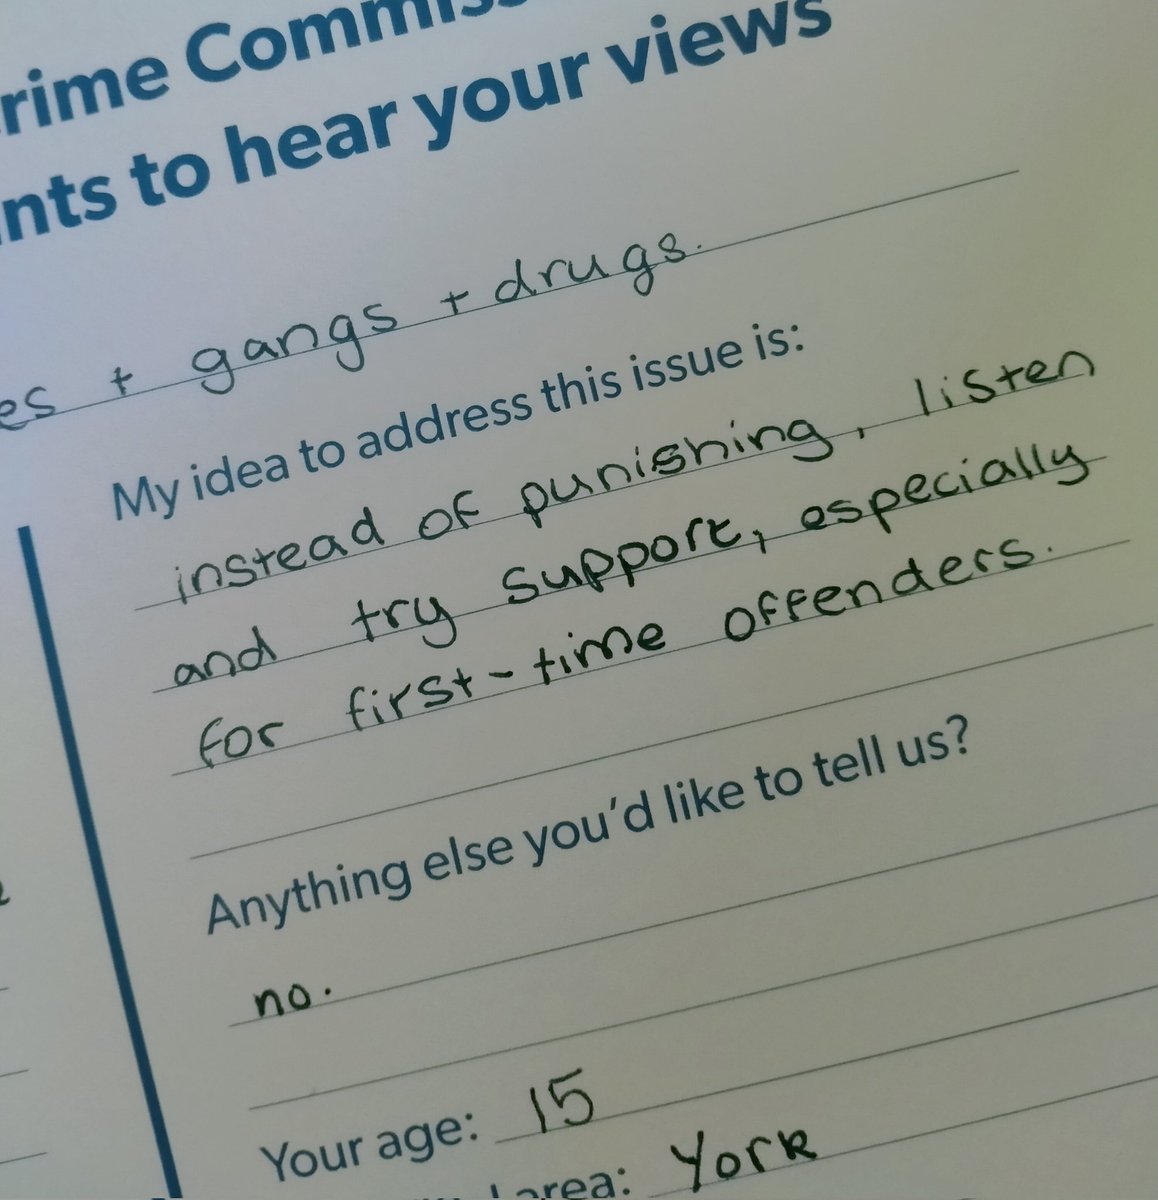 rime Commiss
nts to hear your views
es + gangs + drugs.
My idea to address this issue is:
instead of punishing, listen
and try support, especially
for first-time offenders.
Anything else you'd like to tell us?
no.
Your age: 15
area: York